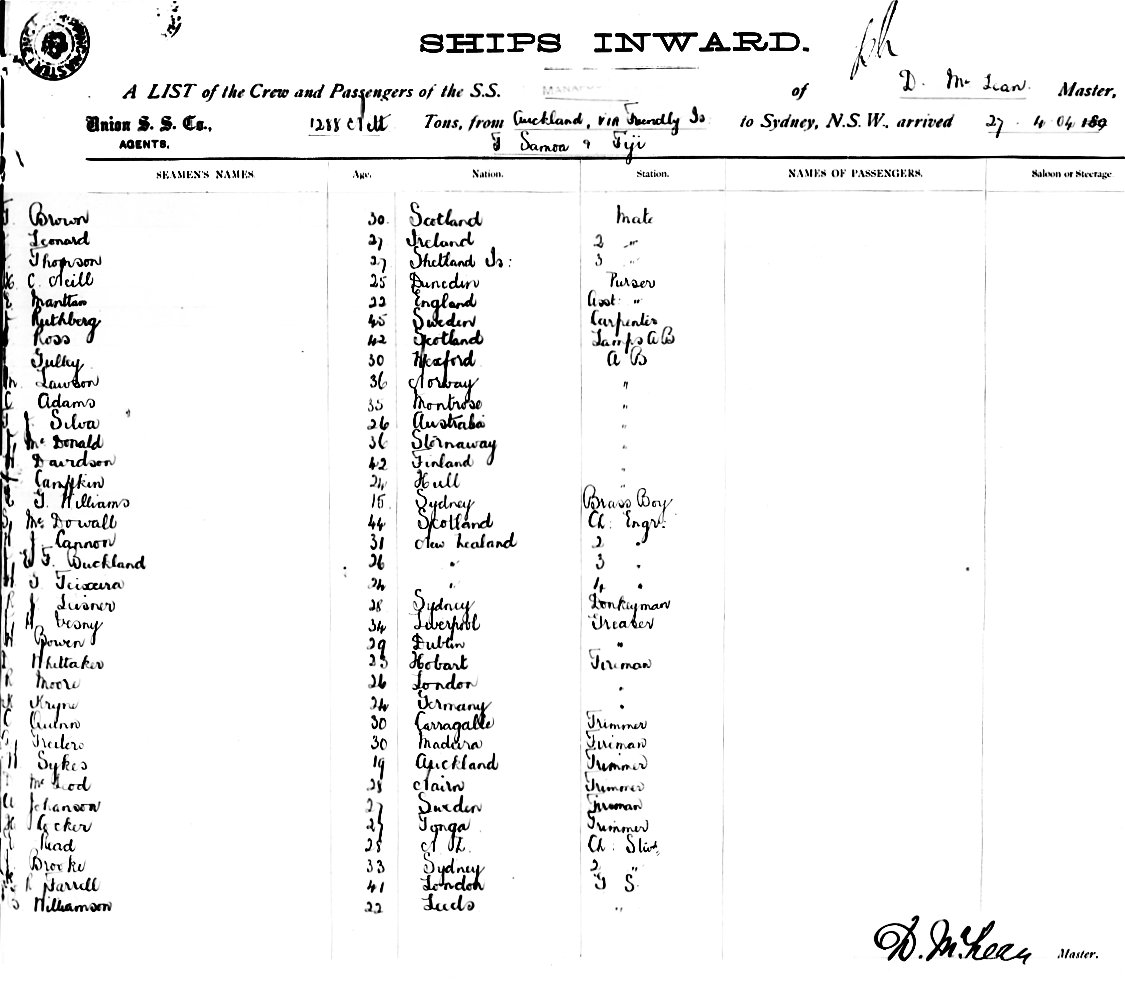 SHIPS INWARD.
A LIST of the Crew and Passengers of the S.S. of D. McLean Master,
Union S. S. Co., 1288 Nett Tons, from Auckland, via Friendly Is to Sydney, N.S.W., arrived 27 . 4 . 04 189
AGENTS. Samoa & Fiji
SEAMEN'S NAMES Age. Nation. Station. NAMES OF PASSENGERS. Saloon or Steerage
Brown 30 Scotland Mate
Leonard 27 Ireland 2 "
Thomson 27 Shetland Is: 3 "
C. Neill 25 Dunedin Purser
Manttan 22 England Asst: "
Ruthberg 45 Sweden Carpenter
Ross 42 Scotland Lamps A B
30 Wexford A B
Lawson 36 Norway "
Adams 35 Montrose "
J. Silva 26 Australia "
McDonald 36 Stornaway "
Davidson 42 Finland "
Campkin 24 Hull "
T. Williams 15 Sydney Brass Boy
McDowall 44 Scotland Ch: Engr.
J. Cannon 31 New Zealand 2 "
F. Buckland 26 " 3 "
Teixeira 24 " 4 "
J. 28 Sydney Donkeyman
34 Liverpool Greaser
Bowen 29 Dublin "
Whittaker 23 Hobart Fireman
Moore 26 London "
24 Germany "
Quinn 30 Trimmer
30 Madeira Fireman
Sykes 19 Auckland Trimmer
McLeod 28 Nairn Trimmer
Johanson 27 Sweden Fireman
Cocker 27 Tonga Trimmer
Read 25 Ch: Stwd
Brooke 33 Sydney 2 "
Farrell 41 London F S
Williamson 22 Leeds "
D. McLean Master.